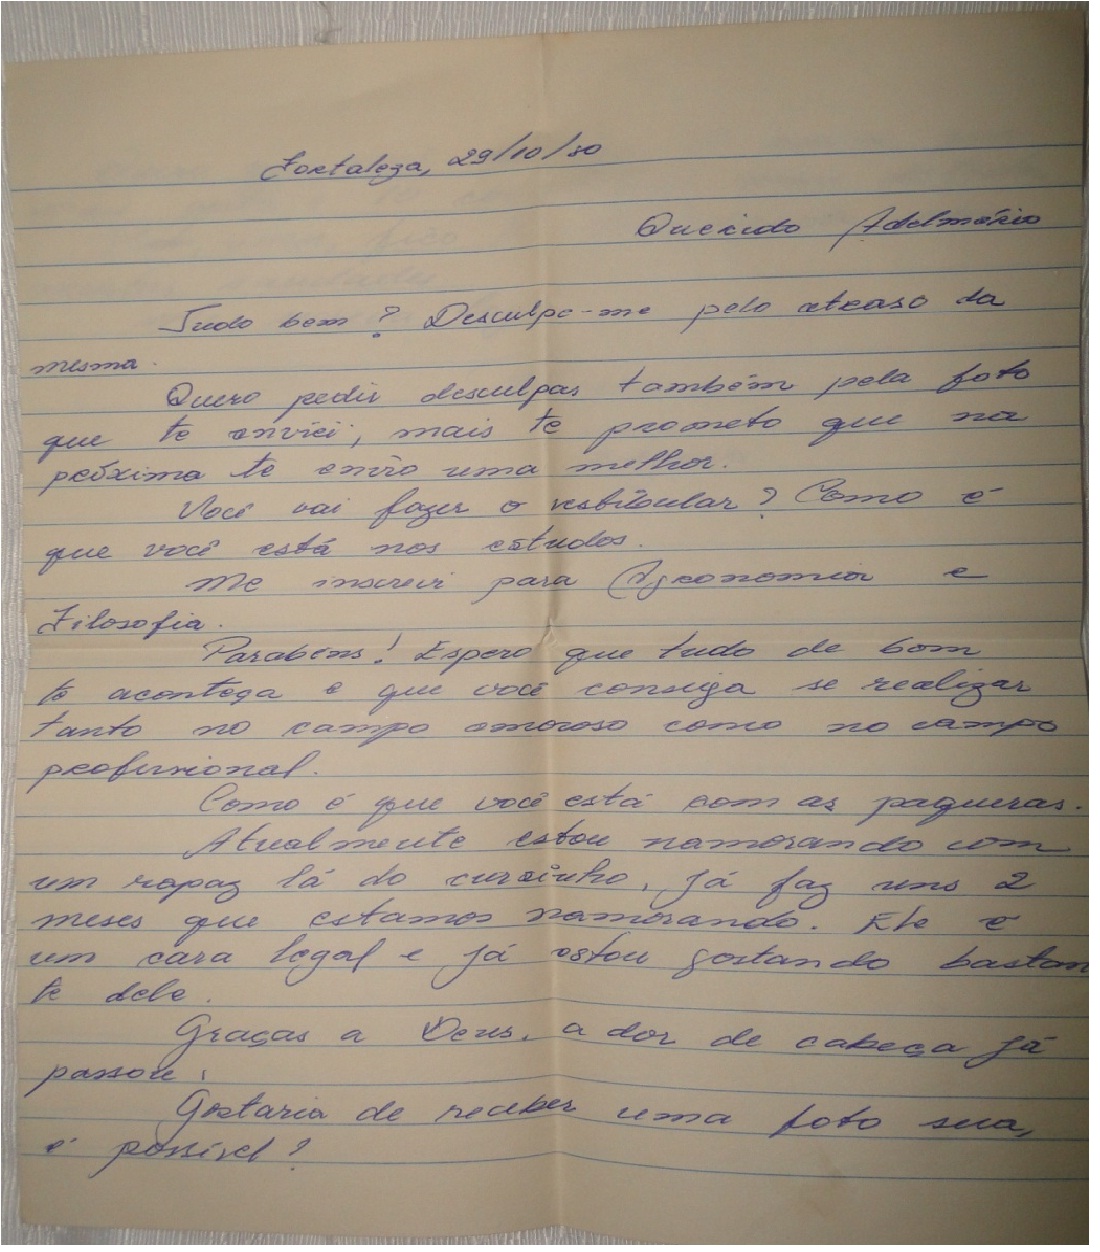 Fortaleza, 29/10/80
Querido Adelmário
Tudo bem? Desculpe-me pelo atraso da
mesma.
Quero pedir desculpas também pela foto
que te enviei, mais te prometo que na
próxima te envio uma melhor.
Você vai fazer o vestibular? Como é
que você está nos estudos.
Me inscrevi para Agronomia e
Filosofia.
Parabéns! Espero que tudo de bom
te aconteça e que você consiga se realizar
tanto no campo amoroso como no campo
profissional.
Como é que você está com as paqueras.
Atualmente estou namorando com
um rapaz lá do cursinho, já faz uns 2
meses que estamos namorando. Ele é
um cara legal e já estou gostando bastan
te dele.
Graças a Deus, a dor de cabeça já
passou.
Gostaria de receber uma foto sua,
é possível?